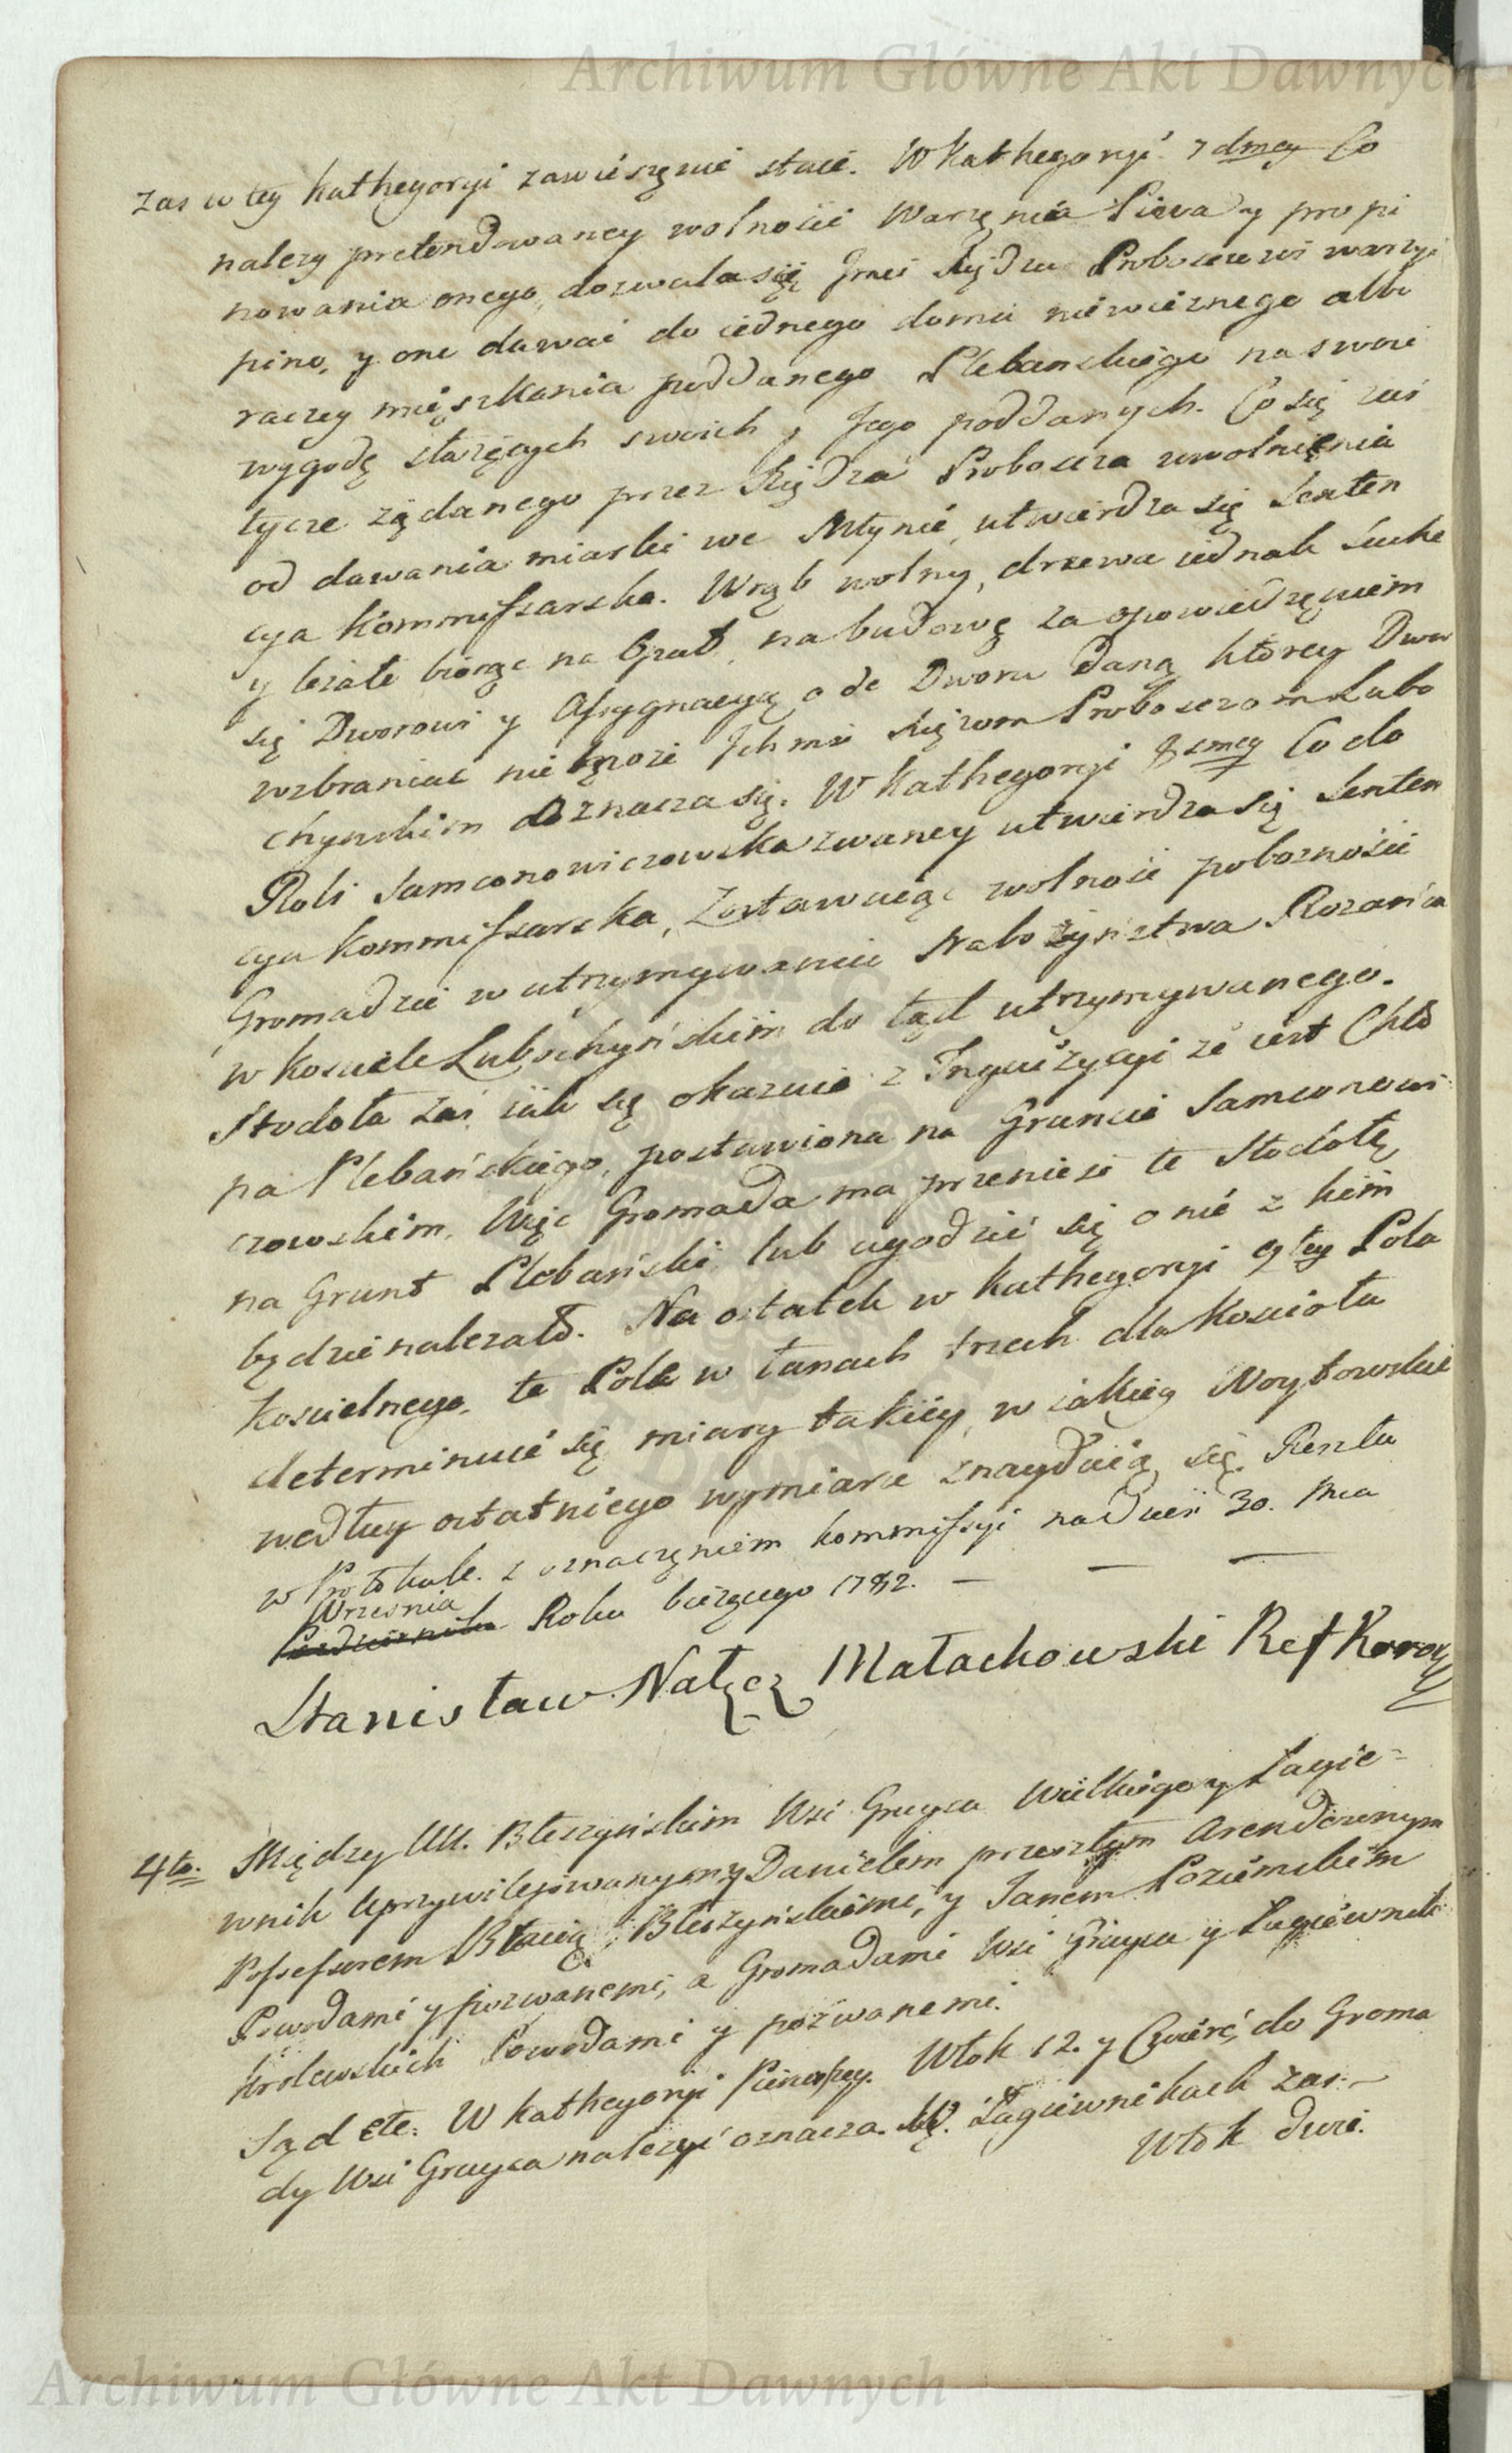 Archiwum Główne Akt Dawnych
zas w tey kathegoryi zawieszenie stacie. W kathegoryi 7dmey Co
nalezy pretendowaney wolności Warzenia Piwa y propi
nowania onego, dozwala się Jmci Xiędzu Proboszczowi warzyć
piwo, y one dawać do iednego domu niewieznego albo
raczey mięszkania poddanego Plebanskiego na swoie
wygodę służących swoich y Jego poddanych. Co się zaś
tycze żądanego przez Xiędza Proboszcza uwolnienia
od dawania miarki we Młynie, utwierdza się Senten
cya Kommissarska. Wrąb wolny, drzewa iednak suche
y leżałe biorąc na Opał, na budowę za opowiedzęniem
się Dworowi y Assygnacyą ode Dworu daną którey Dwor
wzbraniać nie może Ichmć Xięzom Proboszczom Lubo
chynskim oznacza się. W Kathegoryi 8smey Co do
Roli Samconowiczowska zwaney utwierdza się Senten
cya Kommissarska, Zostawuiąc wolność poboznosci
Gromadzie w utrzymywaniu Nabożęństwa Rozańca
w Kosciele Lubochyńskim do tąd utrzymywanego.
Stodoła zaś iak się okazuie z Inquizycyi że iest Chło
pa Plebańskiego, postawiona na Gruncie Samconowi
czowskim, Więc Gromada ma przenieść te Stodołę
na Grunt Plebański lub ugodzić się o nié z kim
będzie nalezało. Na ostatek w kathegoryi 9tey Pola
Koscielnego, te Pole w łanach trzech dla Kościoła
determinuie się miary takiey, w iakiey Woytowskie
według ostatniego wymiaru znayduią się. Reszta
w Protokule z oznaczęniem kommissyi na dzień 30. Mca
Wrzesnia
Pazdziernika Roku bieżącego 1782.
Stanisław Nałęcz Małachowski Ref Koron
4to. Między UU. Bleszyńskim Wsi Gruyca Wielkiego y Łagie-
wnik Uprzywilejowanym, y Danielem przeszłym Arendownym
Possessorem Bracią Bleszyńskiemi, y Janem Poziemskim
Powodami y pozwanemi, a Gromadami Wsi Gruyca y Łagiewnik
Krolewskich Powodami y pozwanemi.
Sąd etc. W kathegoryi Pierwszey. Włok 12. y Cwierć, do Groma
dy Wsi Gruyca należyć oznacza. W. Łagiewnikach zas
Włok dwie.
Archiwum Główne Akt Dawnych